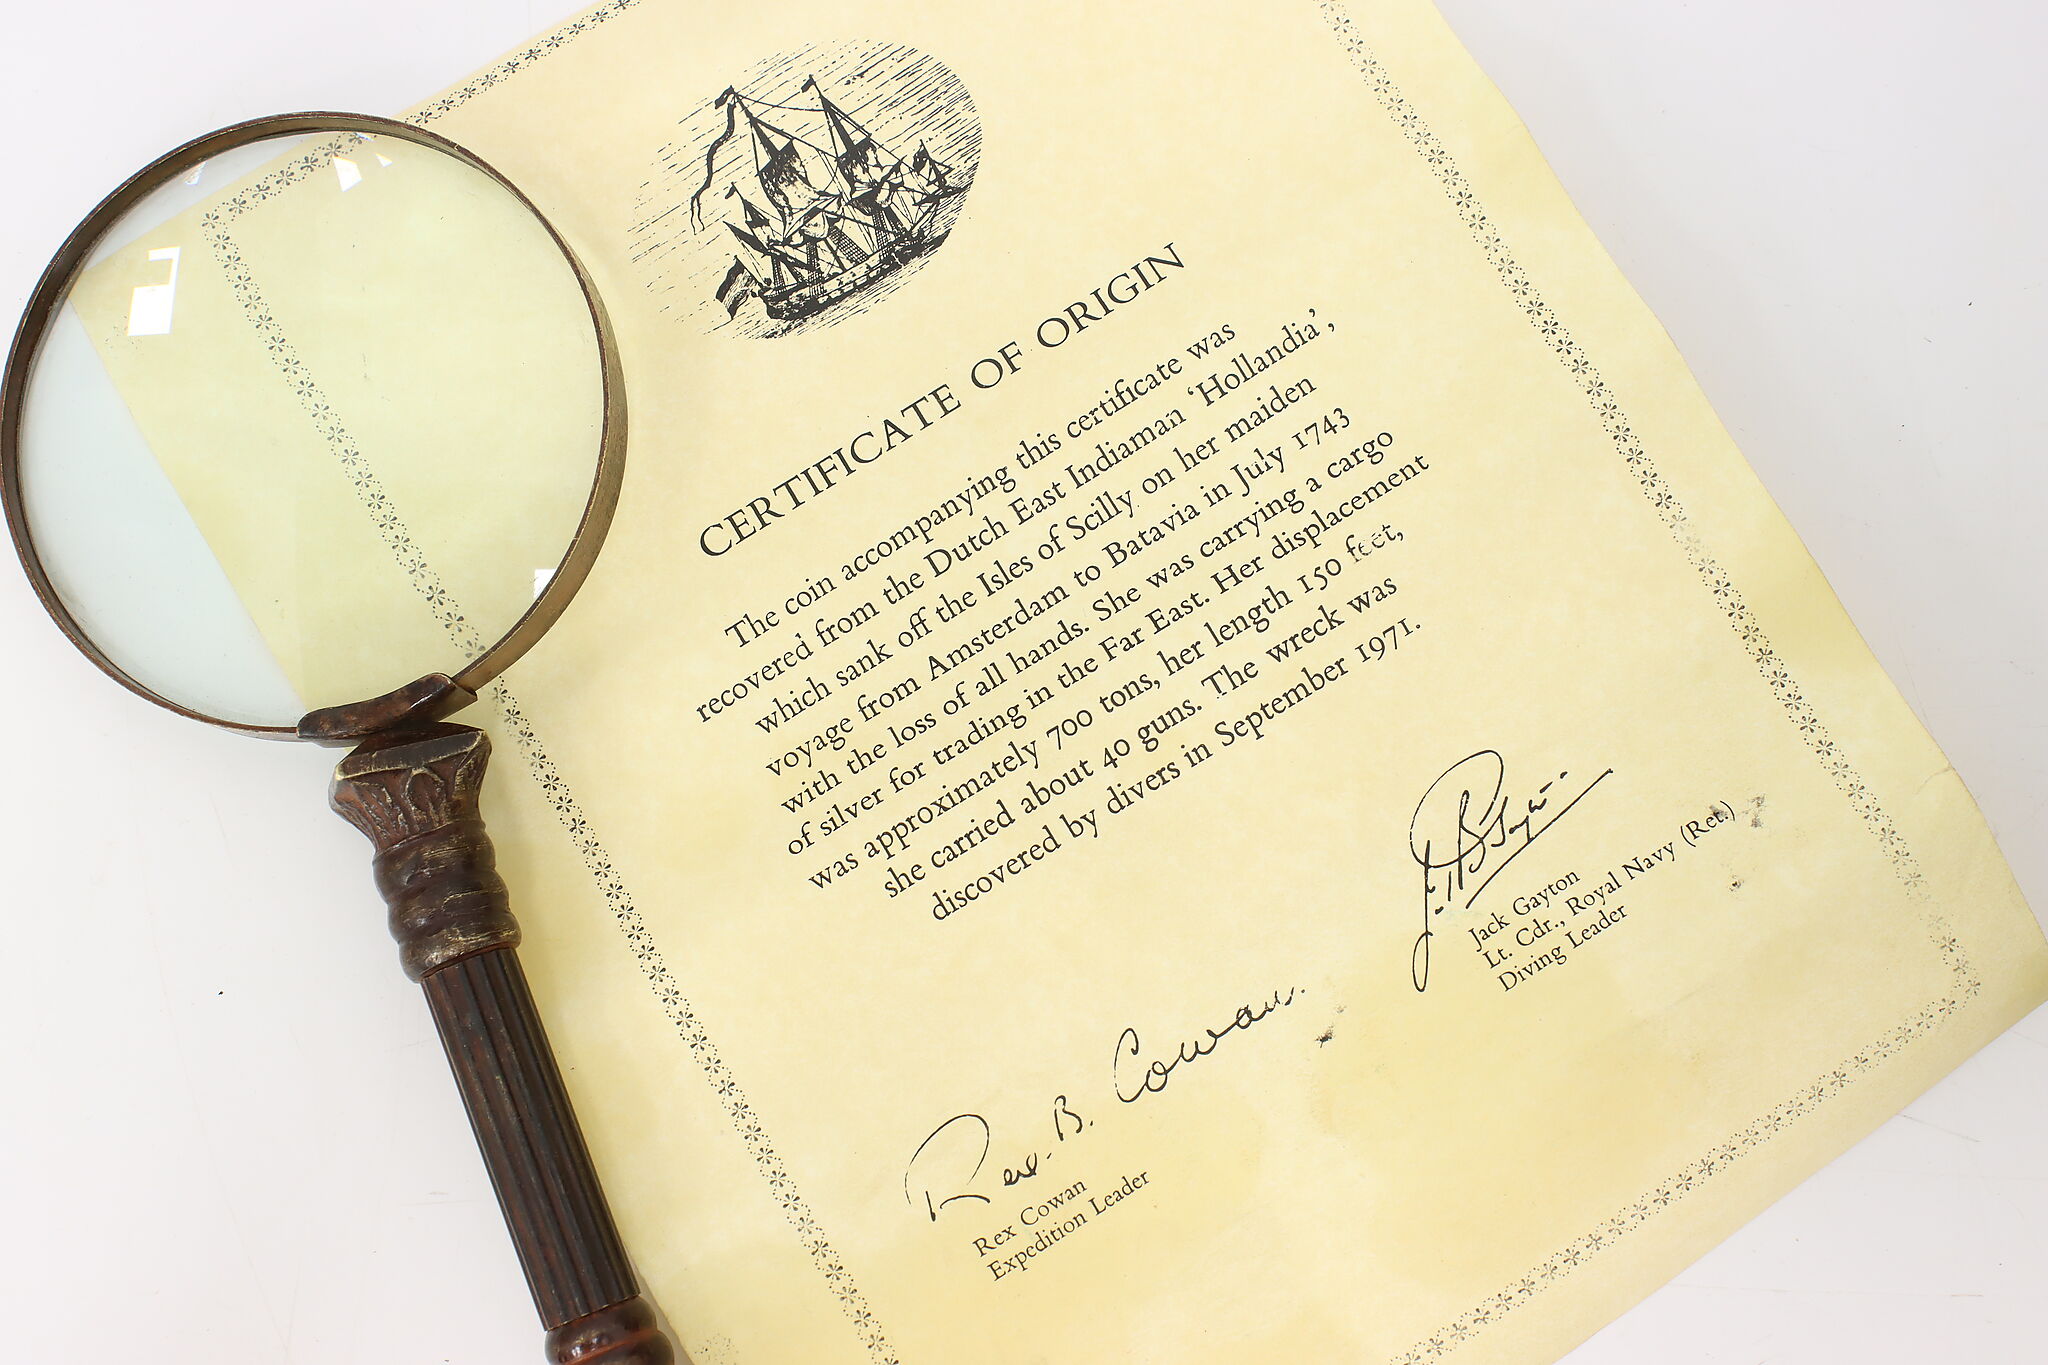 CERTIFICATE OF ORIGIN
The coin accompanying this certificate was
recovered from the Dutch East Indiaman ‘Hollandia’,
which sank off the Isles of Scilly on her maiden
voyage from Amsterdam to Batavia in July 1743
with the loss of all hands. She was carrying a cargo
of silver for trading in the Far East. Her displacement
was approximately 700 tons, her length 150 feet,
she carried about 40 guns. The wreck was
discovered by divers in September 1971.
J. B Gayton
Jack Gayton
Lt. Cdr., Royal Navy (Ret.)
Diving Leader
Rex. B. Cowan.
Rex Cowan
Expedition Leader